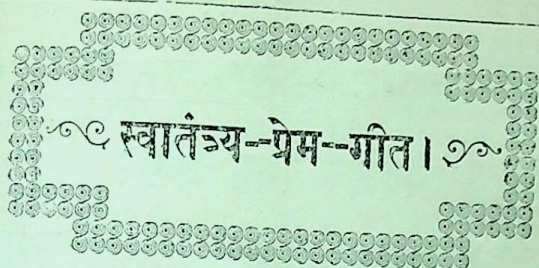 स्वातंत्र्य--प्रेम--गीत।